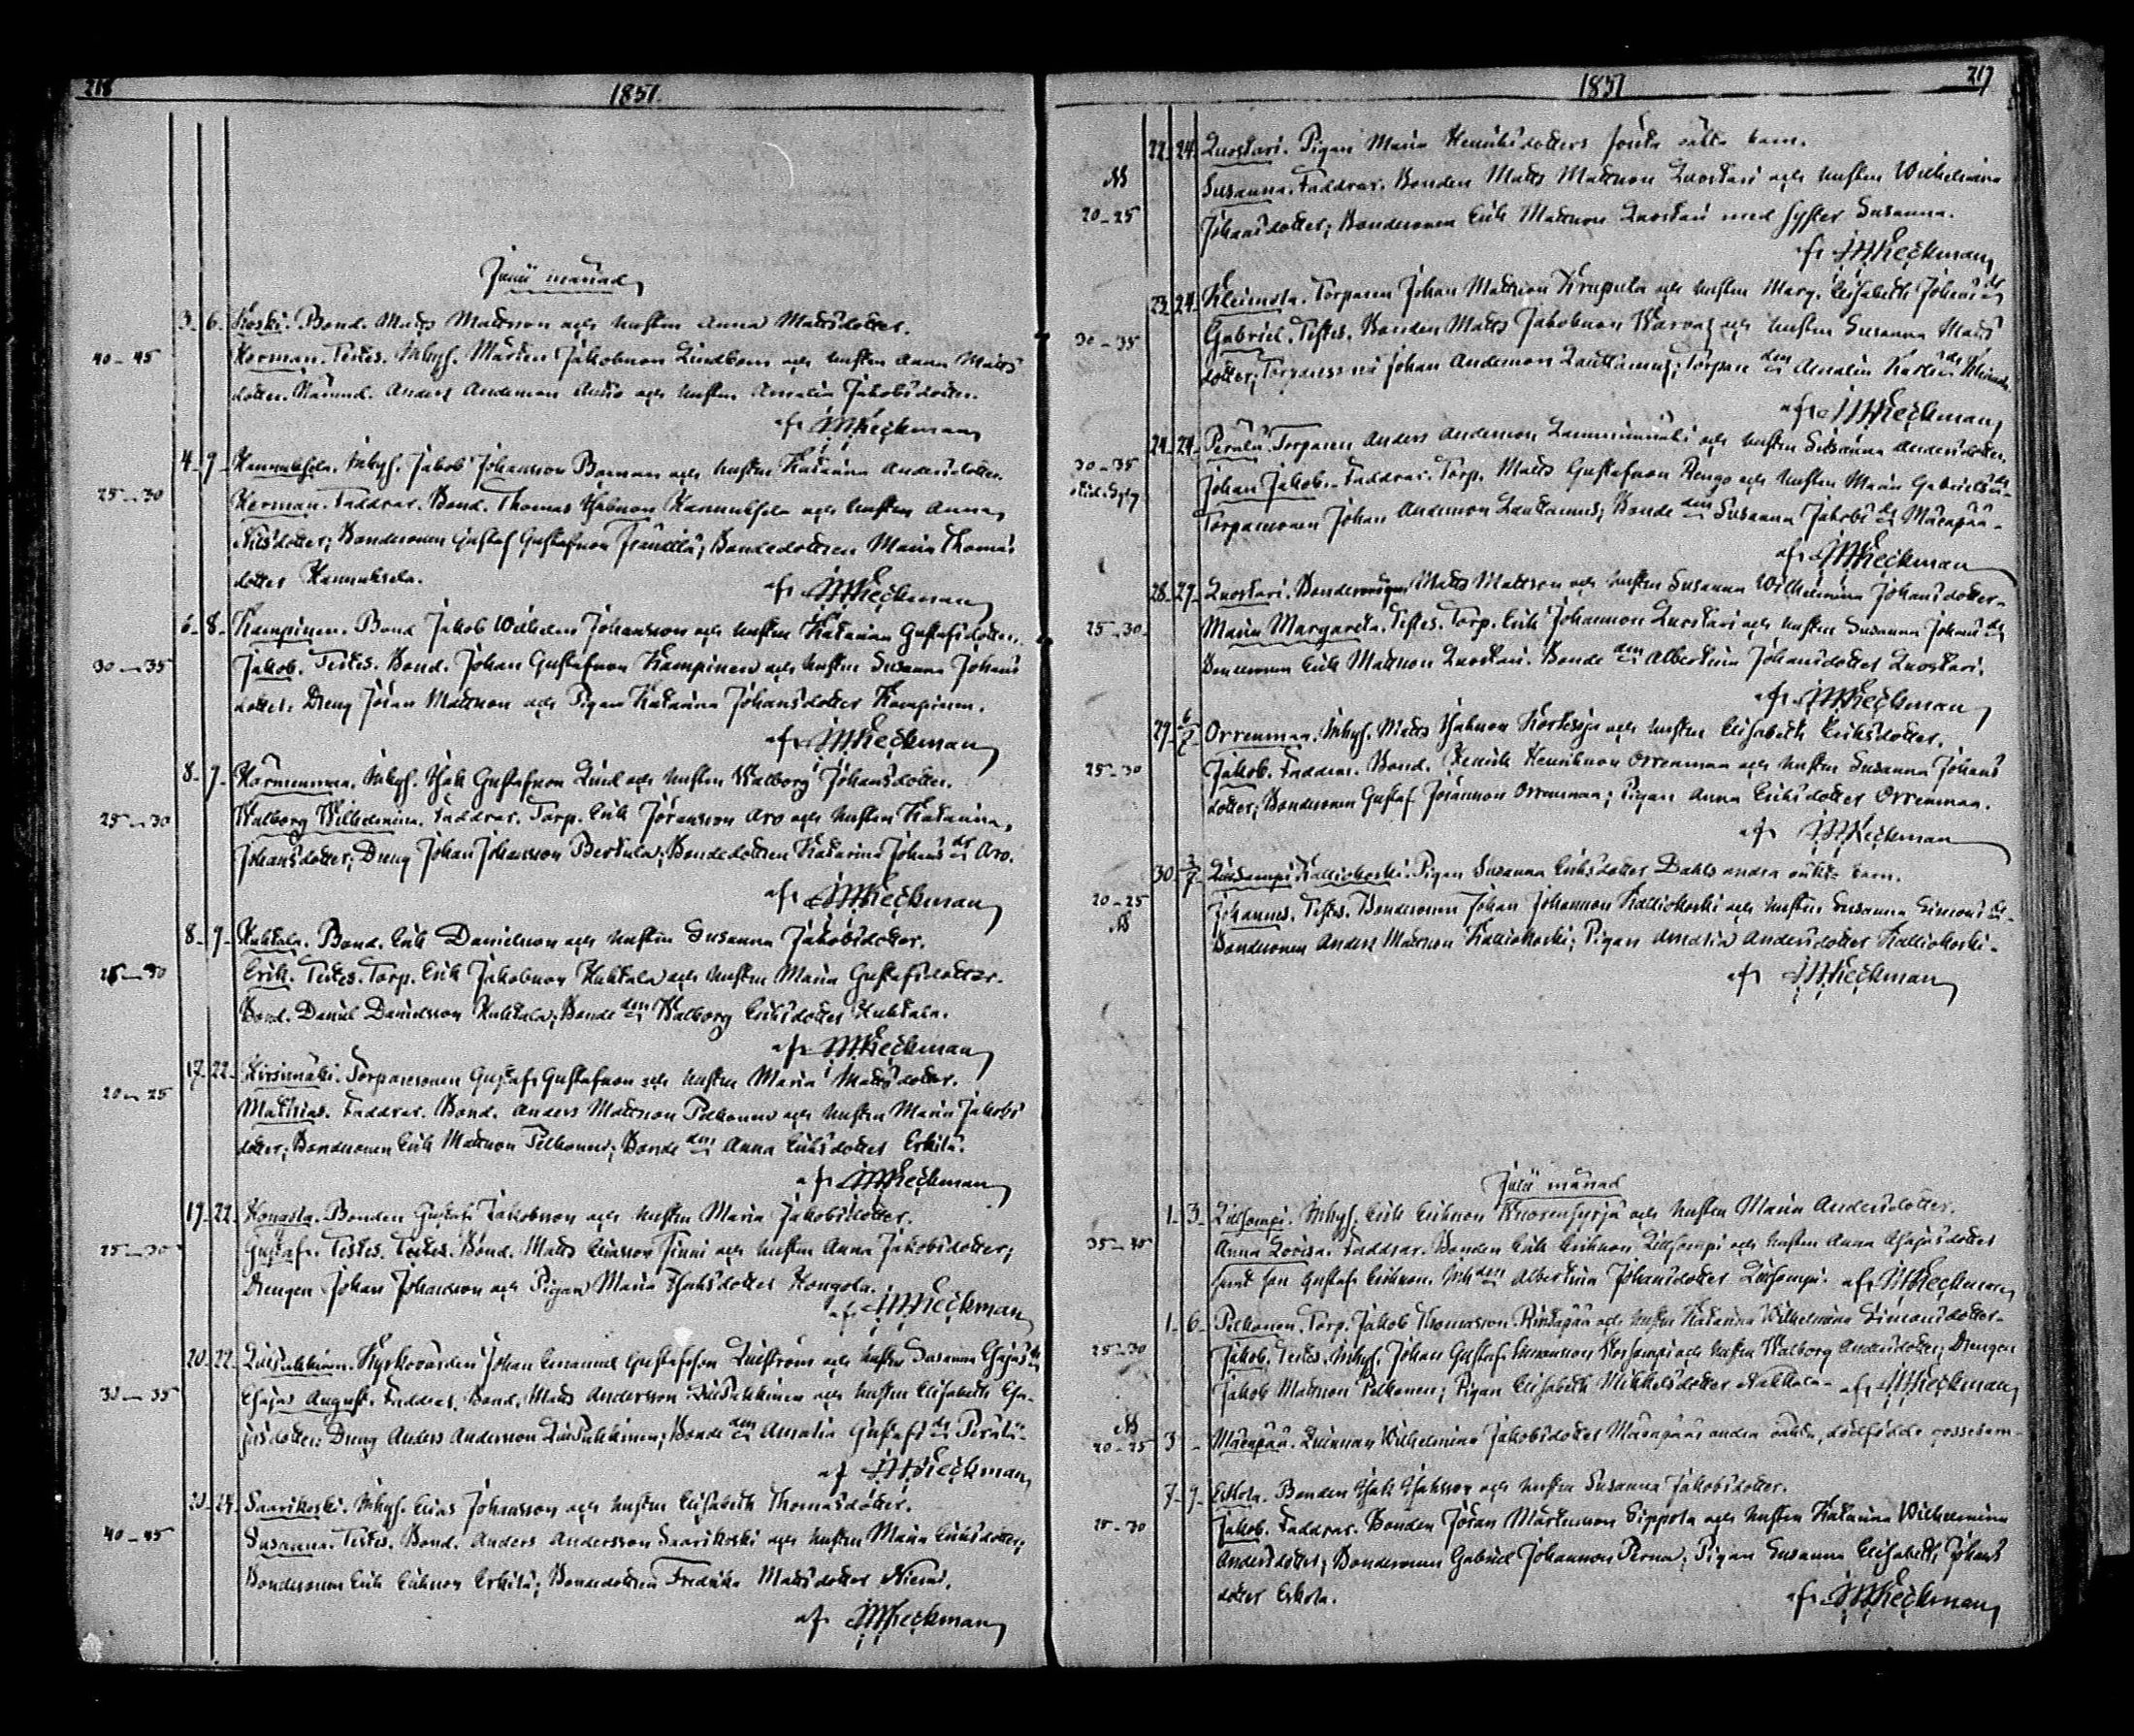 218
1851.
Junii månad
3. 6. Koski. Bond. Matts Mattsson och hustru Anna Mattsdotter.
40-45 Herman. Testes. Inhys. Mårten Jakobsson Lindbom och hustru Anna Matts
dotter. Nämnd. Anders Andersson och hustru Amalia Jakobsdotter.
af JMHeckman
4. 9. Hannuksela. Inhys. Jakob Johansson Boman och hustru Katarina Andersdotter.
25-30 Herman. Faddrar. Bond. Thomas Isaksson Hannuksela och hustru Anna
Nilsdotter; Bondesonen Gustaf Gustafsson Franttilä; Bondedottren Maria Thomas
dotter Hannuksela. af JMHeckman
6. 8. Kampinen. Bond Jakob Wilhelm Johansson och hustru Katarina Gustafsdotter.
30-35 Jakob. Testes. Bond. Johan Gustafsson Kampinen och hustru Susanna Johans
dotter. Dreng Jöran Mattsson och Pigan Katarina Johansdotter Kampinen.
af JMHeckman
8. 9. Inhys. Isak Gustafsson och hustru Walborg Johansdotter.
25-30 Walborg Wilhelmina. Faddrar. Torp. Erik Jöransson Aro och hustru Katarina
Johansdotter; Dreng Johan Johansson Perttula; Bondedottren Katarina Johans dr Aro.
af JMHeckman
8. 9. Huhtala. Bond. Erik Danielsson och hustru Susanna Jakobsdotter.
25-30 Erik. Testes. Torp. Erik Jakobsson Huhtala och hustru Maria Gustafsdotter.
Bond. Daniel Danielsson Huhtala; Bonde den Walborg Eriksdotter Huhtala.
af JMHeckman
17. 22. Hirsimäki. Torparesonen Gustaf Gustafsson och hustru Maria Mattsdotter.
20-25 Mathias. Faddrar. Bond. Anders Mattsson Pelkonen och hustru Maria Jakobs
dotter; Bondesonen Erik Mattsson Pelkonen; Bonde den Anna Eriksdotter Erkilä.
af JMHeckman
19. 22. Hongola. Bonden Gustaf Jakobsson och hustru Maria Jakobsdotter.
25-30 Gustaf. Testes. Testes. Bond. Matts Eliasson Finni och hustru Anna Jakobsdotter;
Drengen Johan Johansson och Pigan Maria Isaksdotter Hongola.
af JMHeckman
20. 22. Kyrkovärden Johan Emanuel Gustafsson och hustru Susanna Esajas dr
30-35 Esajas August. Faddrar. Bond. Matts Andersson och hustru Elisabeth Esa-
jasdotter; Dreng Anders Andersson; Bonde den Amalia Gustafs dr Perälä.
af JMHeckman
23. 24. Saarikoski. Inhys. Elias Johansson och hustru Elisabeth Thomasdotter.
40-45 Susanna. Testes. Bond. Anders Andersson Saarikoski och hustru Maria Eriksdotter;
Bondesonen Erik Eriksson Erkilä; Bondedottren Fredrika Mattsdotter Niemi.
af JMHeckman
1851
219
22. 24. Luostari. Pigan Maria Henriksdotters oäkta barn.
20-25 Susanna. Faddrar. Bonden Matts Mattsson Luostari och hustru Wilhelmina
Johansdotter; Bondesonen Erik Mattsson Luostari med syster Susanna.
af JMHeckman
23. 24. Kleimola. Torparen Johan Mattsson Krapula och hustru Marg. Elisabeth Johans dr
30-35 Gabriel. Testes. Bonden Matts Jakobsson och hustru Susanna Matts
dotter; Torparesonen Johan Andersson Lautkamus; Torpare den Amalia Karls dr
af JMHeckman
24. 24. Perälä. Torparen Anders Andersson och hustru Susanna Andersdotter.
30-35 Johan Jakob. Faddrar. Torp. Matts Gustafsson Rengo och hustru Maria Gabriels dr
Torparesonen Johan Andersson Lautkamus; Bonde den Susanna Jakobs dr Mäenpää.
af JMHeckman
28. 29. Luostari. Matts Mattsson och hustru Susanna Wilhelmina Johansdotter.
25-30 Maria Margareta. Testes. Torp. Erik Johansson Luostari och hustru Susanna Johans dr
Bondesonen Erik Mattsson Luostari. Bonde den Albertina Johansdotter Luostari.
af JMHeckman
29. 6/7 Orrenmaa. Inhys. Matts Isaksson Korkeoja och hustru Elisabeth Eriksdotter.
25-30 Jakob. Faddrar. Bond. Henrik Henriksson Orrenmaa och hustru Susanna Johans
dotter; Bondesonen Gustaf Jöransson Orrenmaa; Pigan Anna Eriksdotter Orrenmaa.
af JMHeckman
30. 3/7 Kalliokoski. Pigan Susanna Eriksdotter Dahls andra oäkta barn.
20-25 Johannes. Testes. Bondesonen Johan Johansson Kalliokoski och hustru Susanna Simons dr
Bondesonen Anders Mattsson Kalliokoski; Pigan Amalia Andersdotter Kalliokoski.
af JMHeckman
Julii månad
1. 3. Luhsampi. Inhys. Erik Eriksson Wuorensyrjä och hustru Maria Andersdotter.
35-40 Anna Lovisa. Faddrar. Bonden Erik Eriksson Luhsampi och hustru Anna Esajasdotter
samt son Gustaf Eriksson. Albertina Johansdotter Luhsampi. af JMHeckman
1. 6. Pelkonen. Torp. Jakob Thomasson Rintapää och hustru Katarina Wilhelmina Simonsdotter.
25-30 Jakob. Testes. Inhys. Johan Gustaf och hustru Walborg Andersdotter; Drengen
Jakob Mattsson Pelkonen; Pigan Elisabeth Mikkelsdotter. af JMHeckman
20-25 3 - Mäenpää. Qvinnan Wilhelmina Jakobsdotter Mäenpääs andra oäkta, dödfödde gossebarn.
7. 9. Eskola. Bonden Isak Isaksson och hustru Susanna Jakobsdotter.
25-30 Jakob. Faddrar. Bonden Jöran Mårtensson Sippola och hustru Katarina Wilhelmina
Andersdotter; Bondesonen Gabriel Johansson Perna; Pigan Susanna Elisabeth Johans
dotter Eskola. af JMHeckman